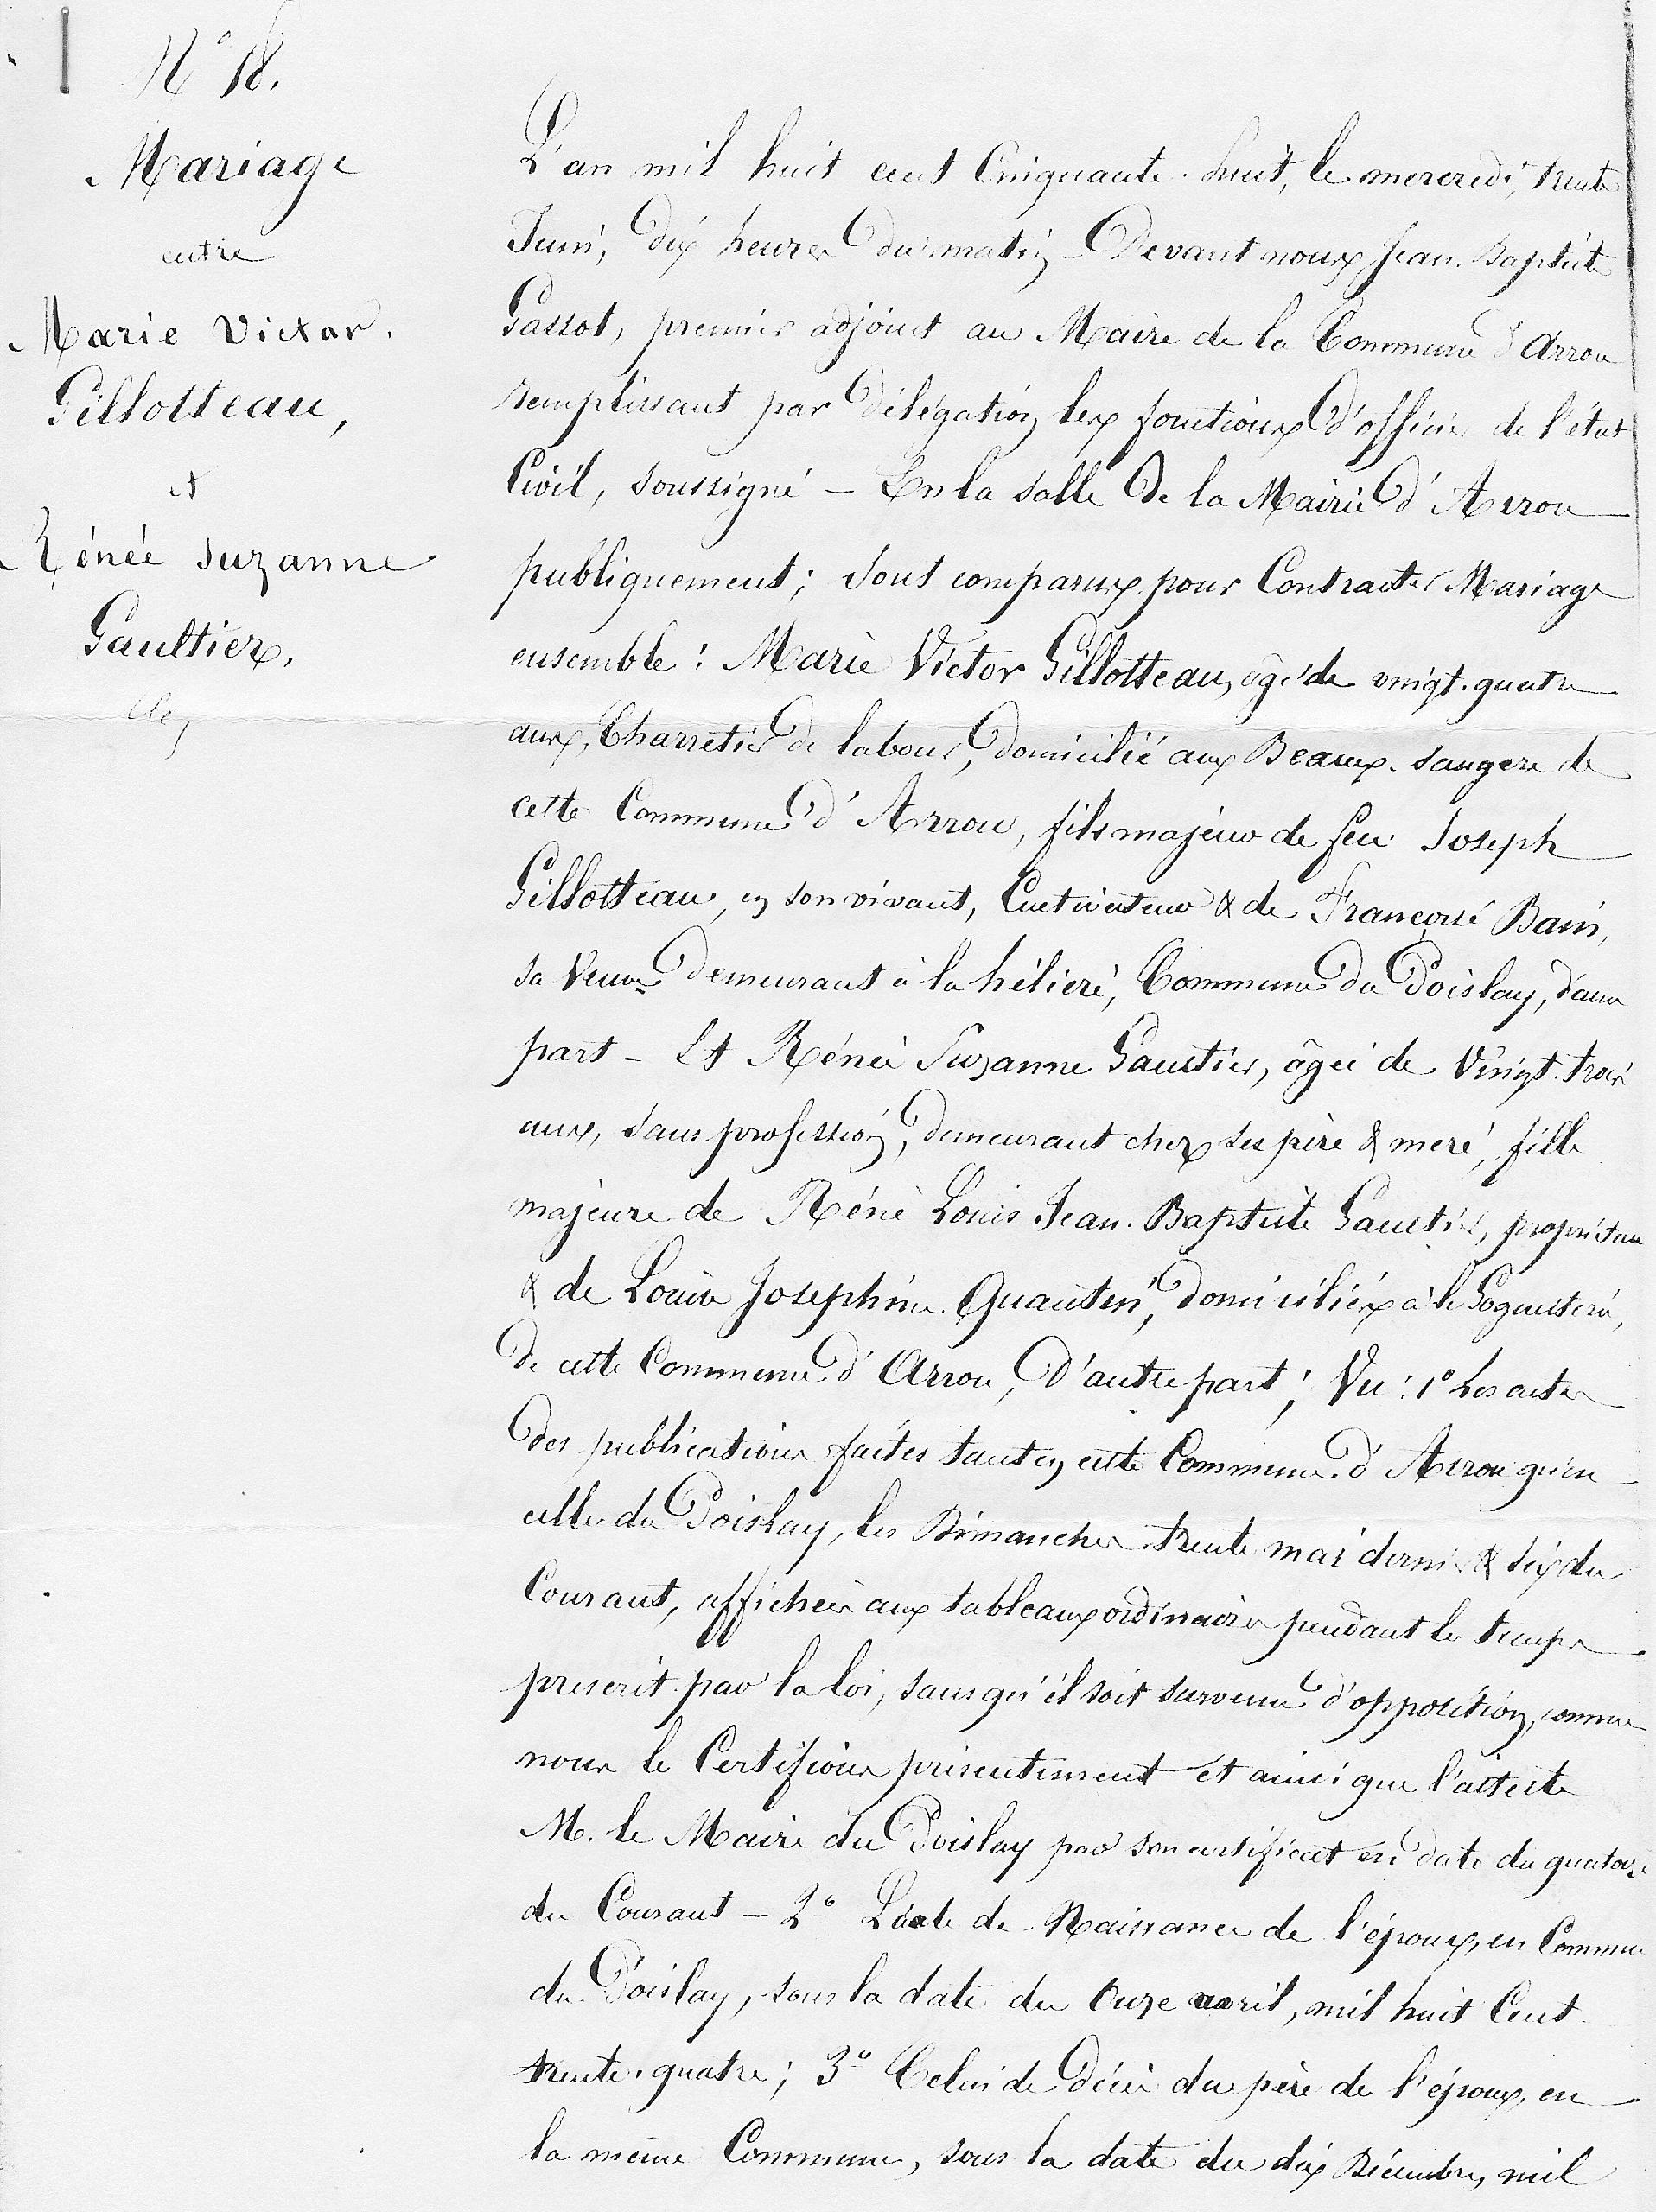 N° 18.
Mariage
entre
Marie Victor
Gillotteau,
et
Rénée Suzanne
Gaultier.
L'an mil huit cent Cinquante-huit, le mercredi, trente
Juin, dix heures du matin – Devant nous Jean-Baptiste
Gassot, premier adjoint au Maire de la Commune d'Arrou
remplissant par délégation les fonctions d'officier de l'état
Civil, soussigné – En la salle de la Mairie d'Arrou
publiquement; Sont comparus pour Contracter Mariage
ensemble : Marie Victor Gillotteau, âgé de vingt-quatre
ans, Charretier de labour, domicilié aux Beaux-
cette Commune d'Arrou, fils majeur de feu Joseph
Gillotteau, en son vivant, Cultivateur & de Françoise Bain,
sa Veuve demeurant à la hélière, Commune du Poislay, d'une
part – Et Rénée Suzanne Gaultier, âgée de Vingt-trois
ans, sans profession, demeurant chez ses père & mère, fille
majeure de Réné Louis Jean-Baptiste Gaultier, propriétaire
& de Louise Joséphine Quantin, domiciliés à la
de cette Commune d'Arrou, D'autre part; Vu : 1° Les actes
des publications faites tant en cette Commune d'Arrou qu'en
celle du Poislay, les Dimanches trente mai dernier & six du
Courant, affichés aux tableaux ordinaires pendant le temps
prescrit par la loi, sans qu'il soit survenu d'opposition, comme
nous le Certifions présentement et ainsi que l'atteste
M. le Maire du Poislay par son certificat en date du quatorze
du Courant – 2° L'acte de Naissance de l'époux, en Commune
du Poislay, sous la date du Onze avril, mil huit Cent
trente-quatre; 3° Celui de décès du père de l'époux, en
la même Commune, sous la date du dix Décembre, mil